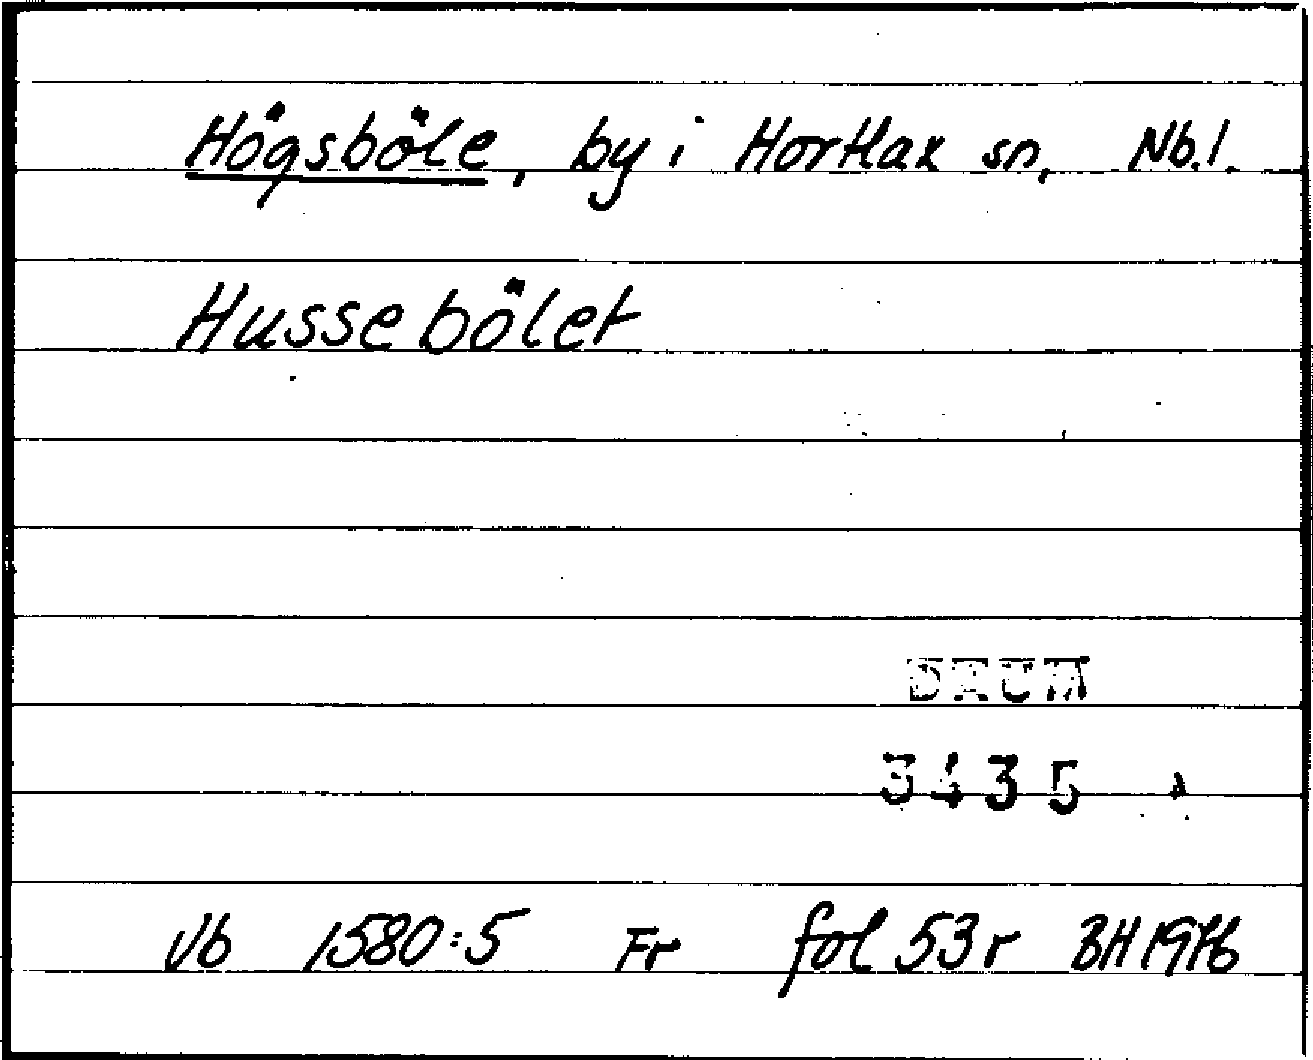 Högsböle, by i Hortlax sn, Nb.l.
Hussebölet
DAUM
3435
Vb 1580:5 Fr fol 53r BH 1976